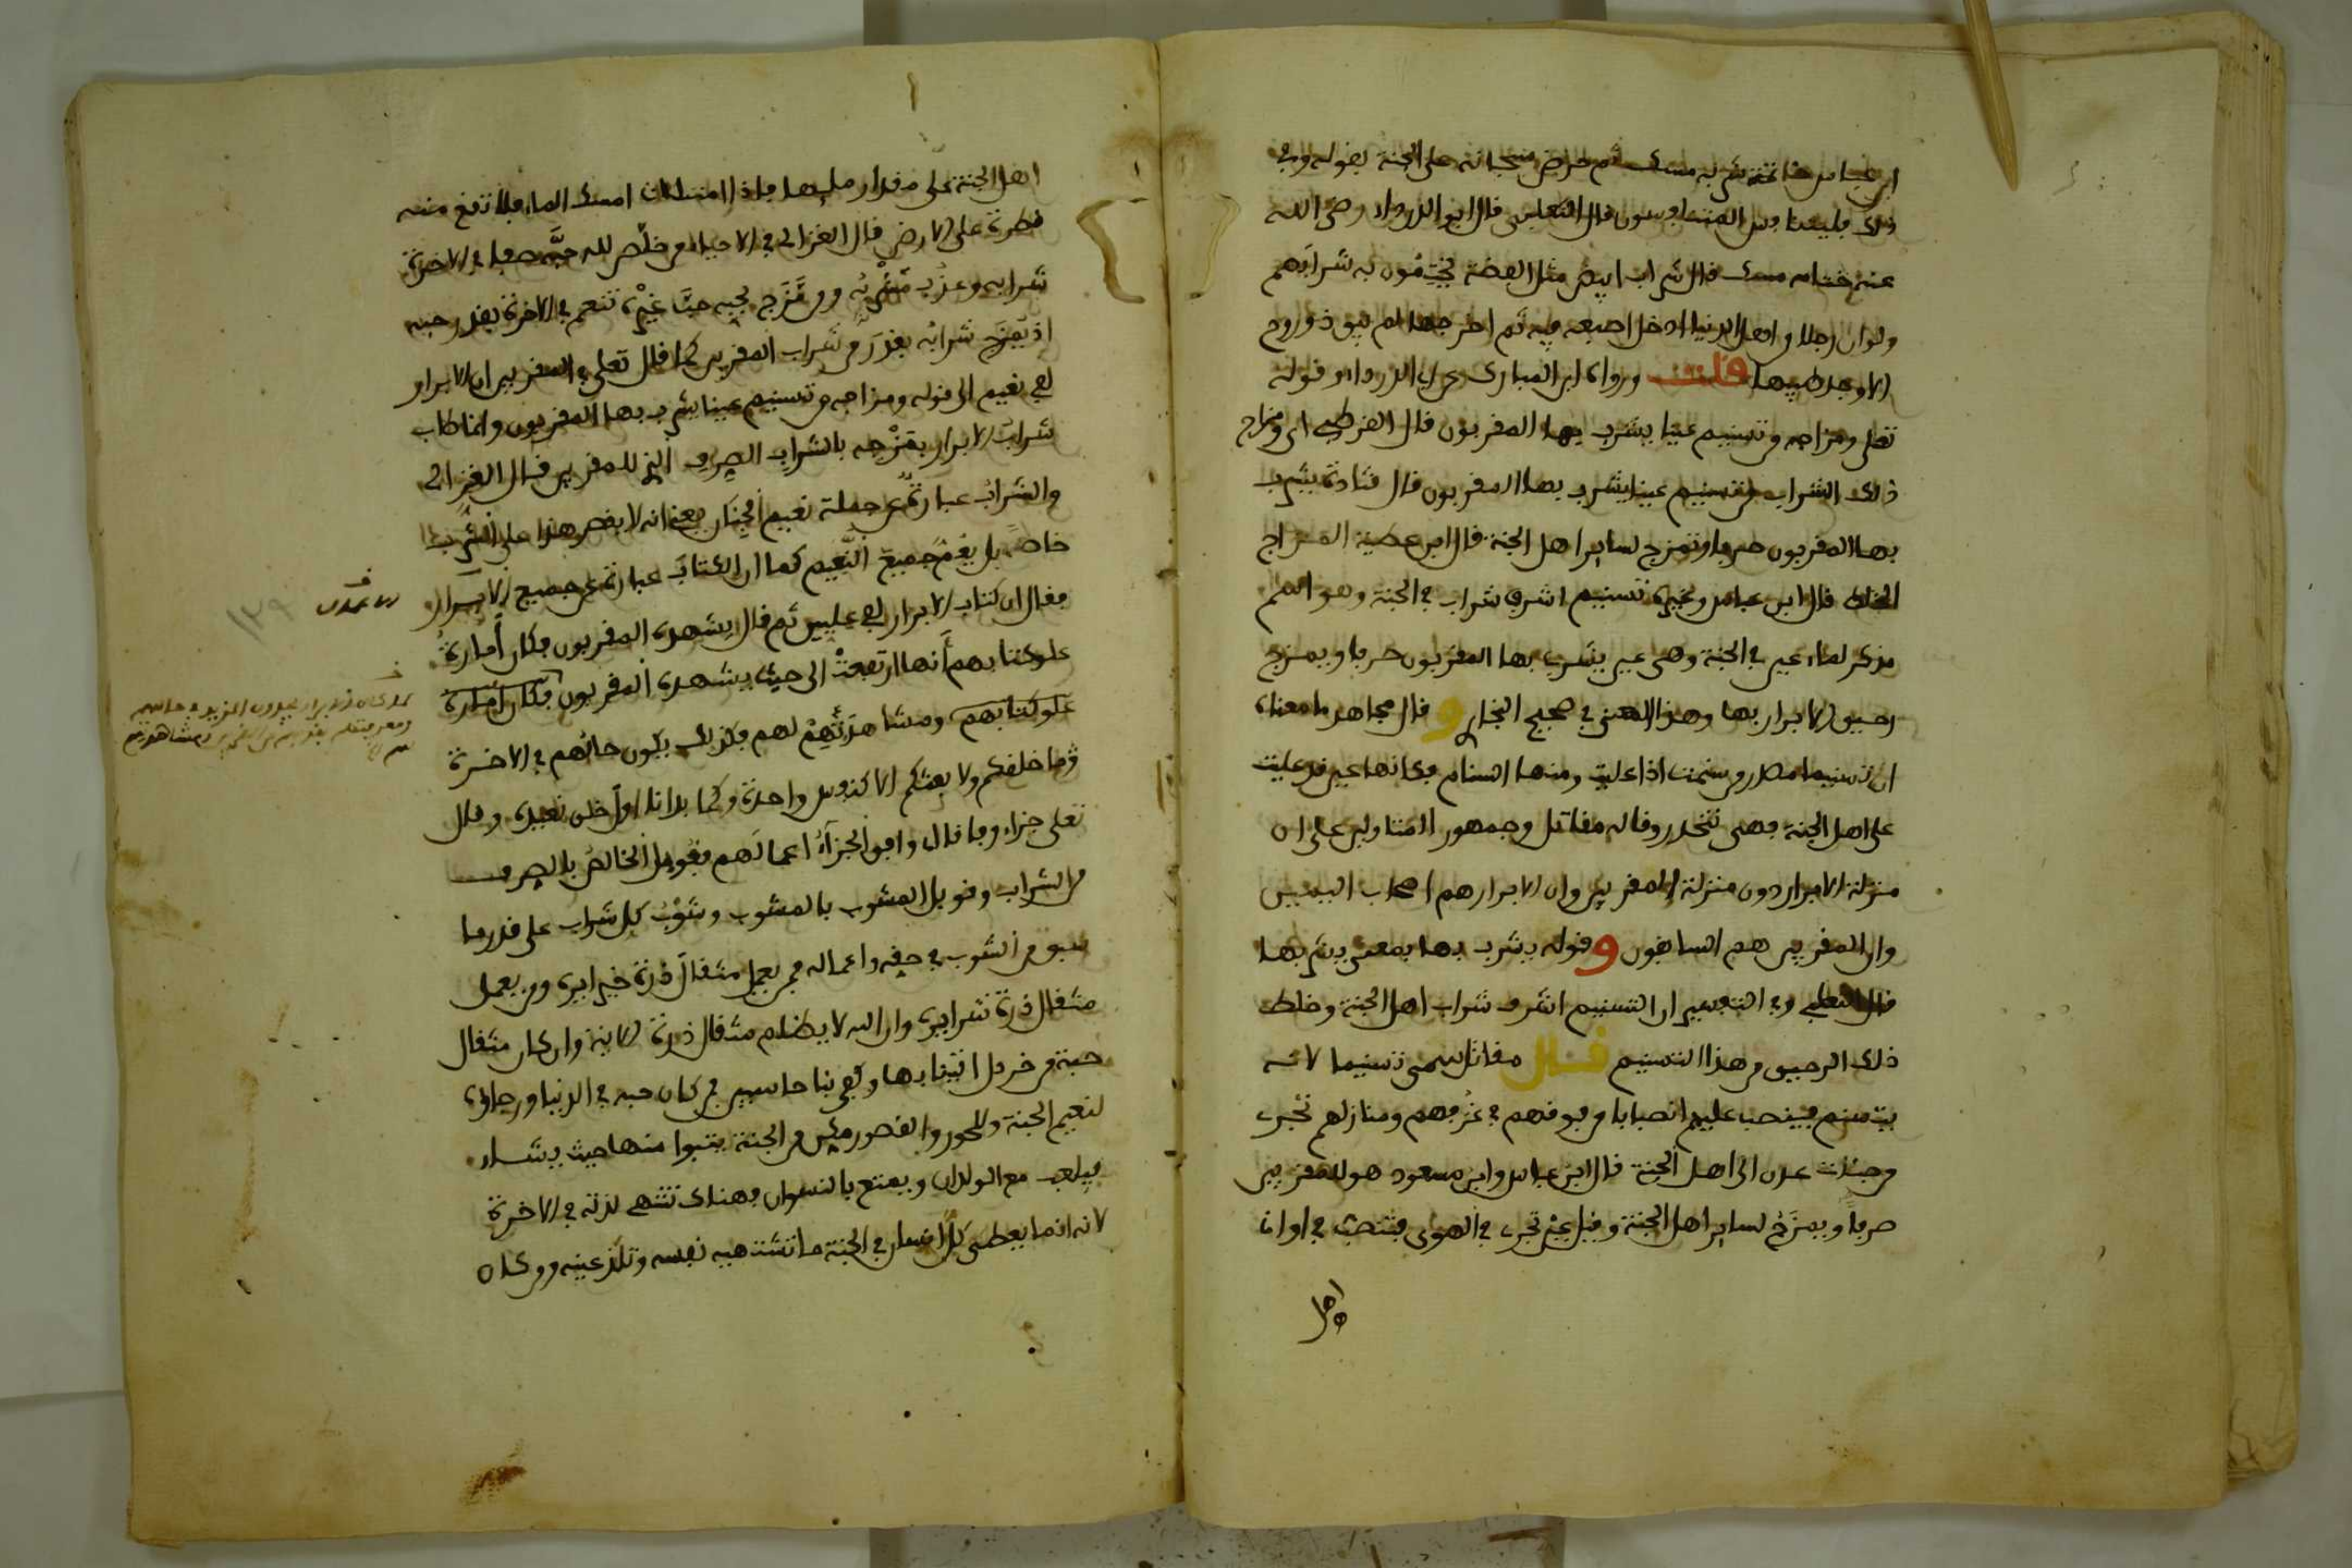 ابن عباس خاتمة شربه مسك ثم حرض سبحانه على الجنة بقوله وفي
ذلك فليتنافس المتنافسون قال الثعلبي قال ابو الدرداء رضي الله
عنه ختامه مسك قال شراب ابيض مثل الفضة يختمون به شرابهم
ولو ان رجلا من اهل الدنيا ادخل اصبعه فيه ثم اخرجها لم يبق ذو روح
الا وجد طيبها قلت ورواه ابن المبارك عن ابي الدرداء وقوله
تعلى ومزاجه من تسنيم عينا يشرب بها المقربون قال القرطبي اى ومزاج
ذلك الشراب من تسنيم عينا يشرب بها المقربون قال قتادة يشرب
بها المقربون صرفا وتمزج لساير اهل الجنة قال ابن عطية المزاج
الخلط قال ابن عباس وغيره تسنيم اشرف شراب في الجنة وهو اسم
مذكر لماء عين في الجنة وهى عين يشرب بها المقربون صرفا ويمزج
رحيق الابرار بها وهذا المعنى في صحيح البخاري و قال مجاهد ما معناه
ان تسنيما مصدر من سنمت اذا عليت ومنها السنام فكانها عين قد عليت
على اهل الجنة فهى تنحدر وقاله مقاتل وجمهور المتاولين على ان
منزلة الابرار دون منزلة المقربين وان الابرار هم اصحاب اليمين
وان المقربين هم السابقون و قوله يشرب بها بمعنى يشربها
قال الثعلبي وفي التفسير ان التسنيم اشرف شراب اهل الجنة وخلط
ذلك الرحيق من هذا التسنيم قال مقاتل سمى تسنيما لانه
يتسنم فينصب عليهم انصبابا من فوقهم في غرفهم ومنازلهم تجرى
من جنات عدن الى اهل الجنة قال ابن عباس وابن مسعود هو للمقربين
صرفا ويمزج لساير اهل الجنة وقيل عين تجرى في الهوى فتنصب في اواني
اهل
اهل الجنة على مقدار مليها فاذا امتلات امسك الماء فلا تقع منه
قطرة على الارض قال الغزالي في الاحياء من خلص لله حبه صفا في الاخرة
شرابه وعذب مشربه ومن مزج بحبه حب غيره تنعم في الاخرة بقدر حبه
اذ يمزج شرابه بقدر من شراب المقربين كما قال تعلى في المقربين ان الابرار
لفي نعيم الى قوله ومزاجه من تسنيم عينا يشرب بها المقربون وانما طاب
شراب الابرار بمزجه بالشراب الصرف الذي للمقربين قال الغزالي
والشراب عبارة عن جملة نعيم الجنان يعني انه لا يقصر هذا على الشرب
خاصة بل يعم جميع النعيم كما ان الكتاب عبارة عن جميع
فقال ان كتاب الابرار لفي عليين ثم قال يشهده المقربون فكان امارة
علو كتابهم انها ارتفعت الى حيث يشهده المقربون فكان امارة
علو كتابهم ومشاهدتهم لهم فكذلك يكون حالهم في الاخرة
ما خلقكم ولا بعثكم الا كنفس واحدة وكما بدانا اول خلق نعيده وقال
تعلى جزاء وفاقا اى وافق الجزاء اعمالهم فقوبل الخالص بالصرف
من الشراب وقوبل المشوب بالمشوب وشوب كل شراب على قدر ما
سبق من الشوب في حبه واعماله فمن يعمل مثقال ذرة خيرا يره ومن يعمل
مثقال ذرة شرا يره وان الله لا يظلم مثقال ذرة الاية وان كان مثقال
حبة من خردل اتينا بها وكفى بنا حاسبين فمن كان حبه في الدنيا ورجاؤه
لنعيم الجنة وللحور والقصور مكن من الجنة يتبوا منها حيث يشاء
فيلعب مع الولدان ويمتع بالنسوان فهناك تنتهى لذته في الاخرة
لانه انما يعطى كل انسان في الجنة ما تشتهيه نفسه وتلذ عينه ومن كان
١٣٩